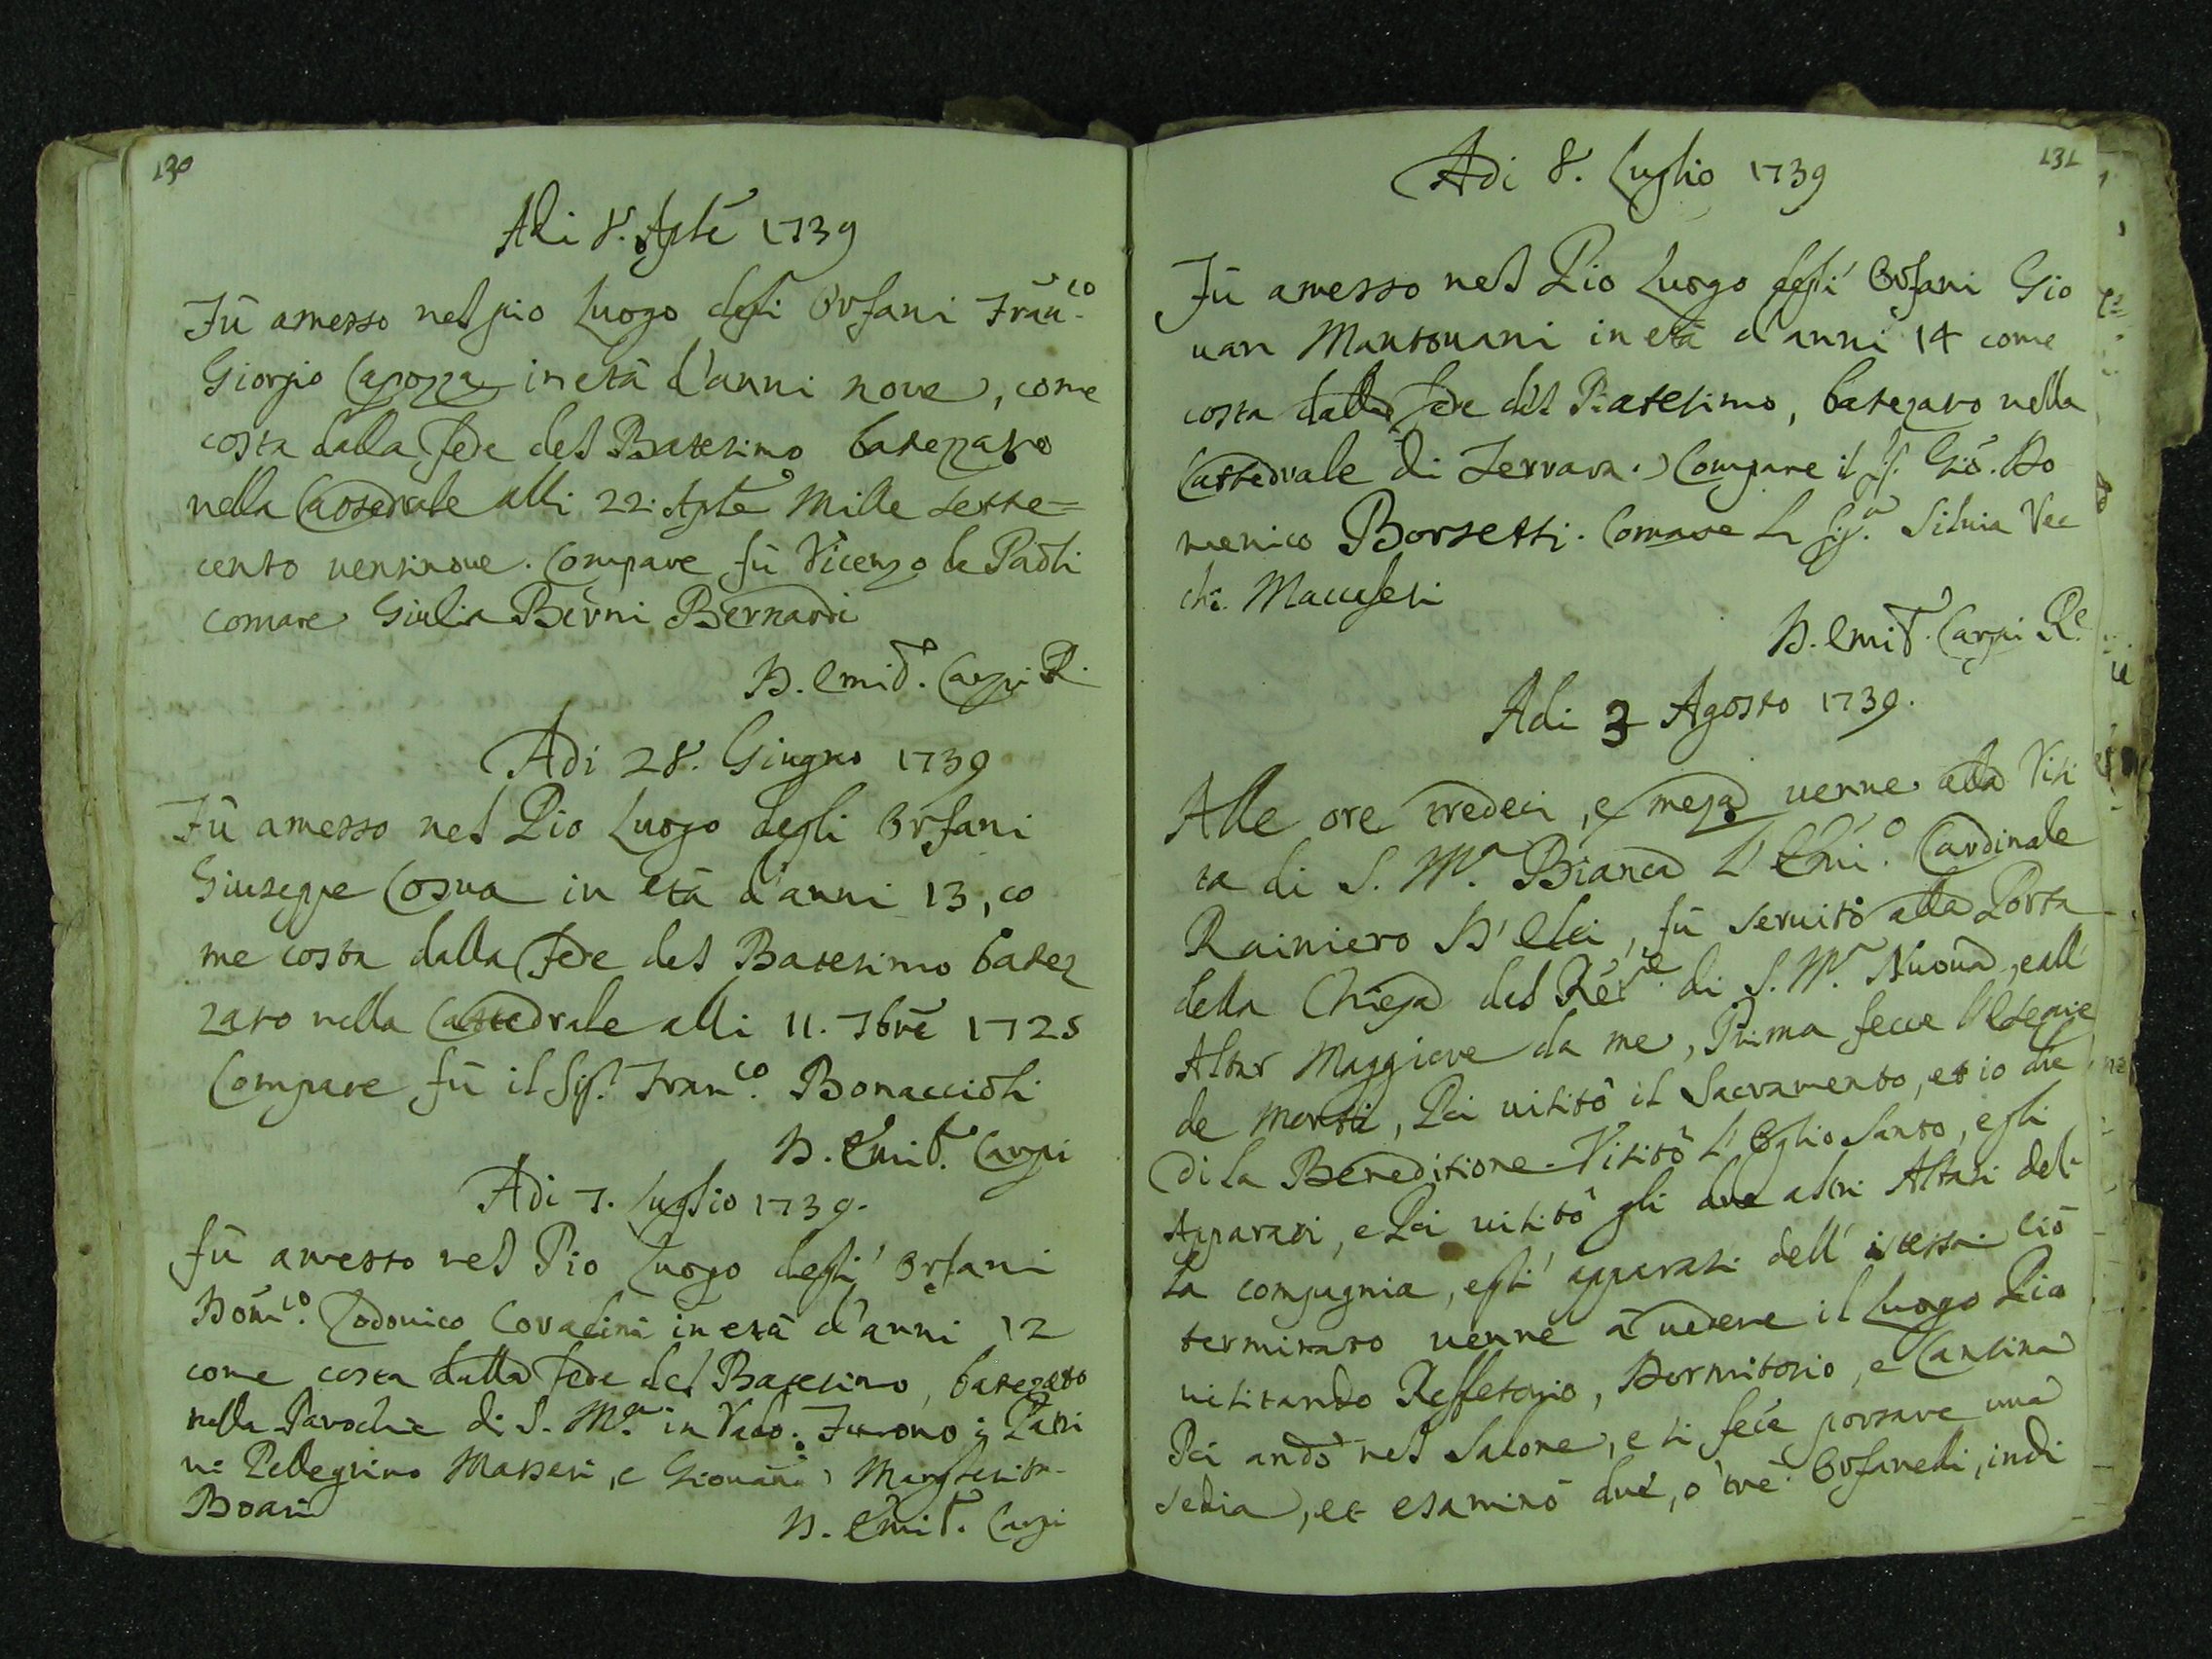 130
Adi 8. Aple 1739
Fù amesso nel pio Luogo degli Orfani Franco
Giorgio Capozza in età d'anni nove, come
costa dalla fede del Batesimo batezzato
nella Catedrale alli 22. Aple Mille sette=
cento ventinove. Compare fù Vicenzo de Paoli
comare Giulia Berni Bernardi
D. Emid. Carpi R.
Adi 28. Giugno 1739
Fù amesso nel Pio Luogo degli Orfani
Giuseppe Cosua in età d'anni 13, co
me costa dalla fede del Batesimo batez
zato nella Cattedrale alli 11. 7bre 1725
Compare fù il Sig.r Franco. Bonaccioli
D. Emid. Carpi
Adi 7. Luglio 1739.
Fù amesso nel Pio Luogo degli Orfani
Domco. Lodovico Coradini in età d'anni 12
come costa dalla fede del Batesimo, batezato
nella Parochie di S. Ma. in Vado. Furono i Patri
ni Pellegrino Masseri, e Giovani Margherita
Boari
D. Emid. Carpi
131
Adi 8. Luglio 1739
Fù amesso nel Pio Luogo degli Orfani Gio
uan Mantouani in età d'anni 14 come
costa dalla fede del Batesimo, batezato nella
Cattedrale di Ferrara. Compare il Sig. Gio. Do
menico Borsetti. Comare La Siga. Siluia Vec
chi Maccaferi
D. Emid. Carpi Re.
Adi 3 Agosto 1739.
Alle ore tredeci, e meza uenne alla Visi
ta di S. Ma. Bianca L'Emo. Cardinale
Rainiero D'Elci, fù seruito alla Porta
della Chiesa dal Retre. di S. Ma. Nuoua, e all'
Altar Maggiore da me, Prima fece l'Esequie
de Morti, Poi uisitò il Sacramento, et io die
di la Bereditione. Visitò L'Oglio Santo, e gli
Apparati, e Poi uisitò gli due altri Altari del
la compagnia, e gli apparati dell' istessa. Ciò
terminato uenne à uedere il Luogo Pio
uisitando Reffetorio, Dormitorio, e Cantina
Poi andò nel Salone, e si fece portare una
sedia, et esaminò due, o trè Orfanelli, indi